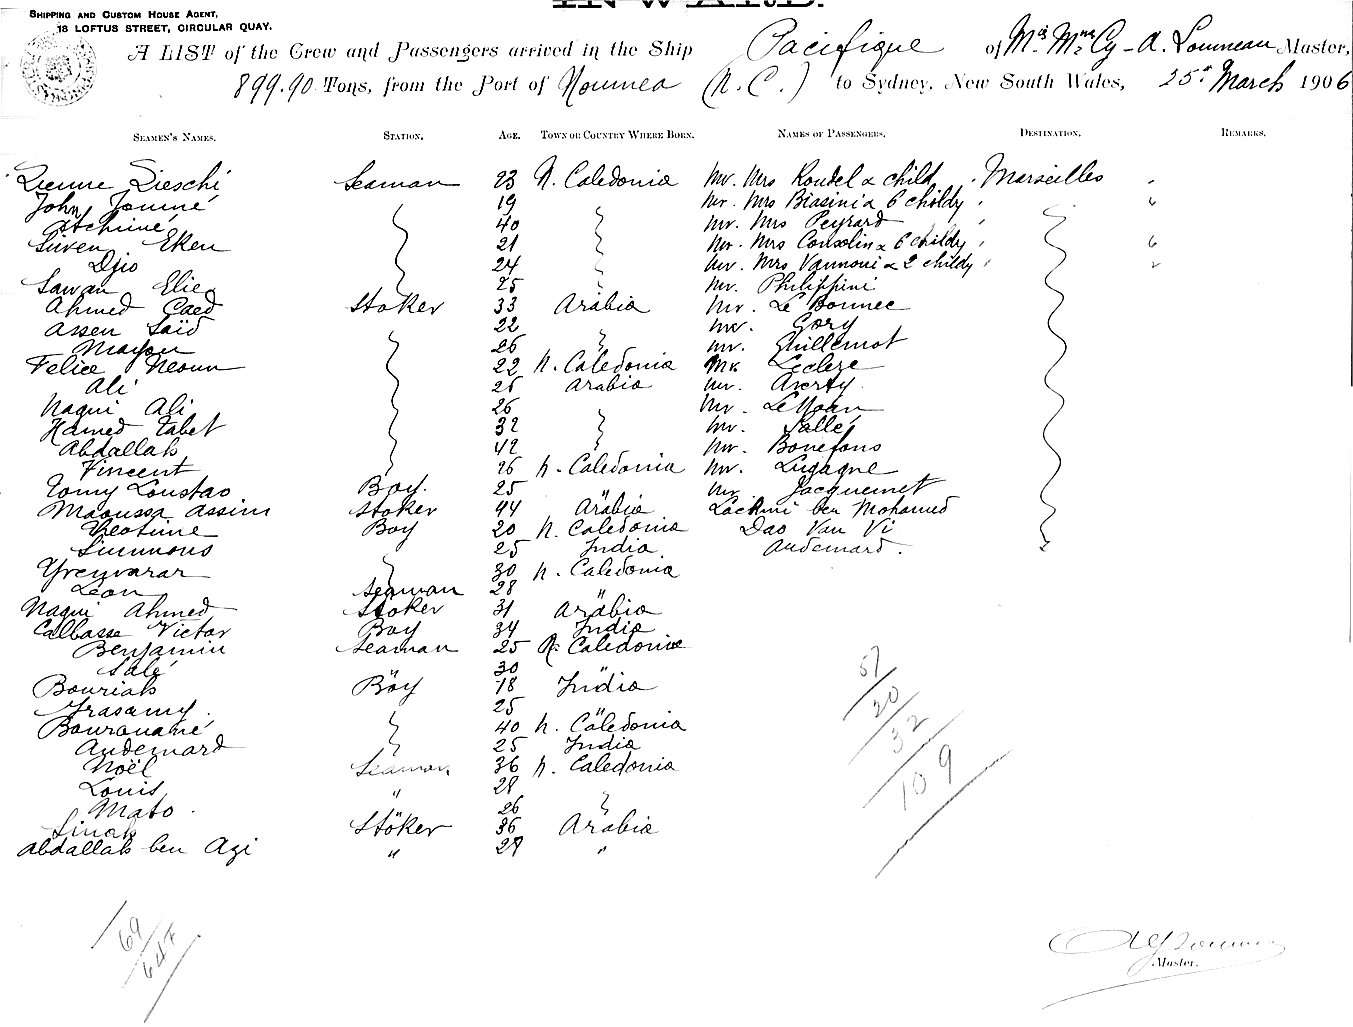 INWARD.
SHIPPING AND CUSTOM HOUSE AGENT,
18 LOFTUS STREET, CIRCULAR QUAY.
A LIST of the Crew and Passengers arrived in the Ship Pacifique of Master,
899.90 Tons, from the Port of Noumea (N.C.) to Sydney, New South Wales, 25th March 1906
SEAMEN'S NAMES. STATION. AGE. TOWN OR COUNTRY WHERE BORN. NAMES OF PASSENGERS. DESTINATION. REMARKS.
Seaman 23 N. Caledonia Mr. Mrs Roudel & child Marseilles
John 19 Mr. Mrs Biasini & 6 childy
40 Mr. Mrs Peyrard
Eken 21 Mr. Mrs Consolin & 6 childy
Djio 24 Mr. Mrs Vannoni & 2 childy
Sawan Elie 25 Mr. Philippini
Ahmed Caed Stoker 33 Arabia Mr. Le Bonnec
Assen Saïd 22 Mr. Gory
Mayou 26 Mr. Guillemot
Felice Neoun 22 N. Caledonia Mr. Leclere
Ali 25 Arabia Mr. Averty.
Nagui Ali 26 Mr.
Hamed Tabet 32 Mr. Sallé
Abdallah 42 Mr. Bonefons
Vincent 26 N. Caledonia Mr. Lugagne
Tomy Loustao Boy. 25 " Mr. Jacquemet
Maoussa Assim Stoker 44 Arabia Lackmi ben Mohamed
Theotime Boy 20 N. Caledonia Dao Van Vi
Simmons 25 India Audemard.
30 N. Caledonia
Leon Seaman 28 "
Nagui Ahmed Stoker 31 Arabia
Calbassa Victor Boy 34 India
Benjamin Seaman 25 N. Caledonia
Salé " 30 "
Bouriah Boy 18 India
25 "
Bourouamé 40 N. Caledonia
Audemard 25 India
Noël Seaman 36 N. Caledonia
Louis " 28
Mato " 26
Sinah Stoker 36 Arabia
Abdallah ben Agi " 27 "
57
20
32
109
69
Master.